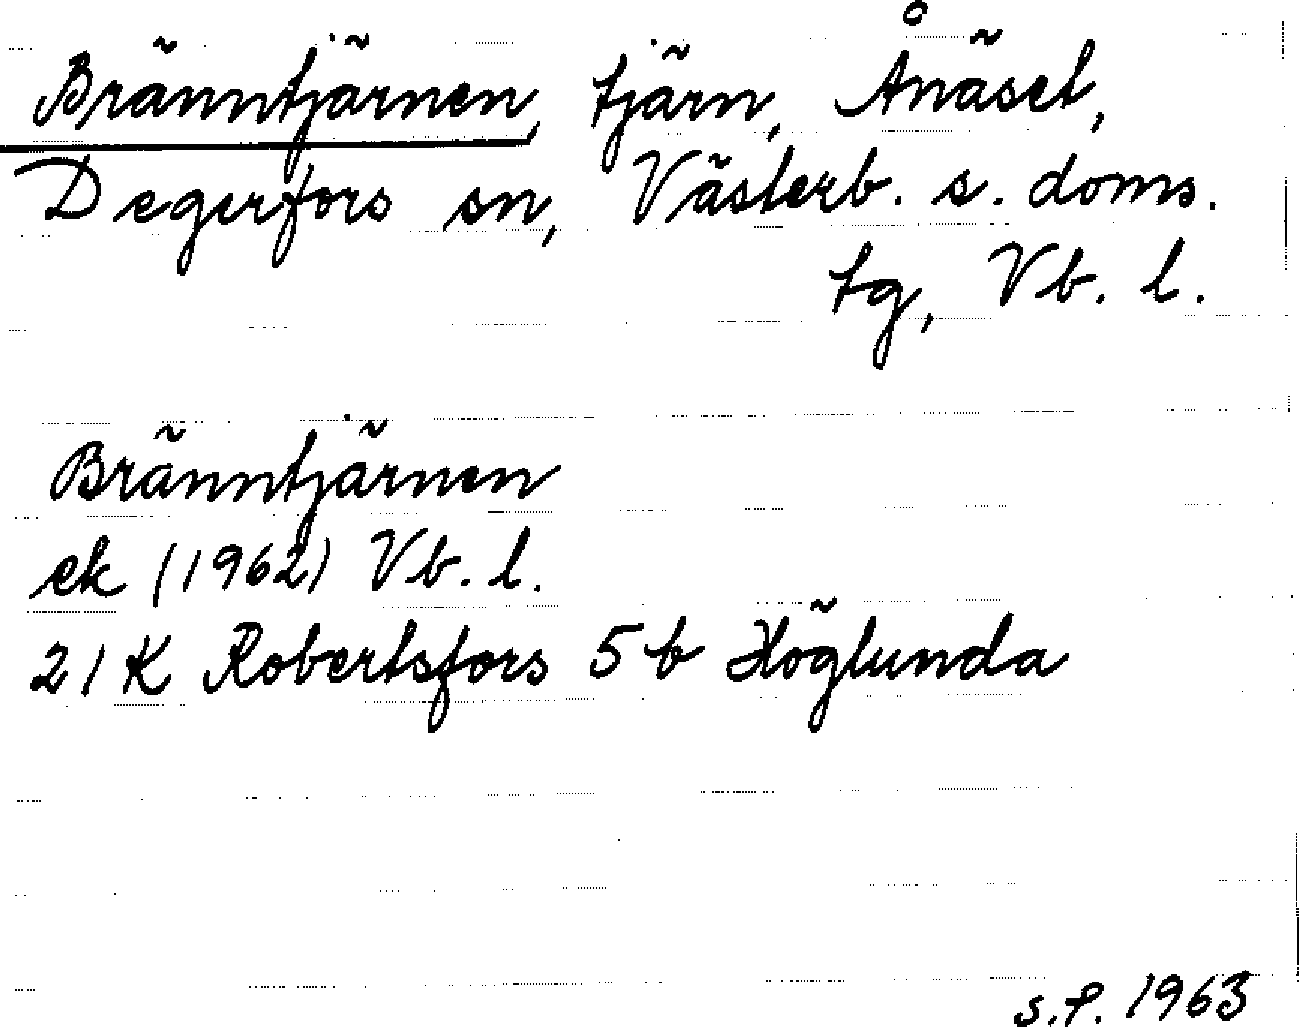 Bränntjärnen, tjärn, Ånäset,
Degerfors sn, Västerb. s. doms.
tg, Vb. l.
Bränntjärnen
ek (1962) Vb. l.
21 K Robertsfors 5 b Höglunda
S.P. 1963